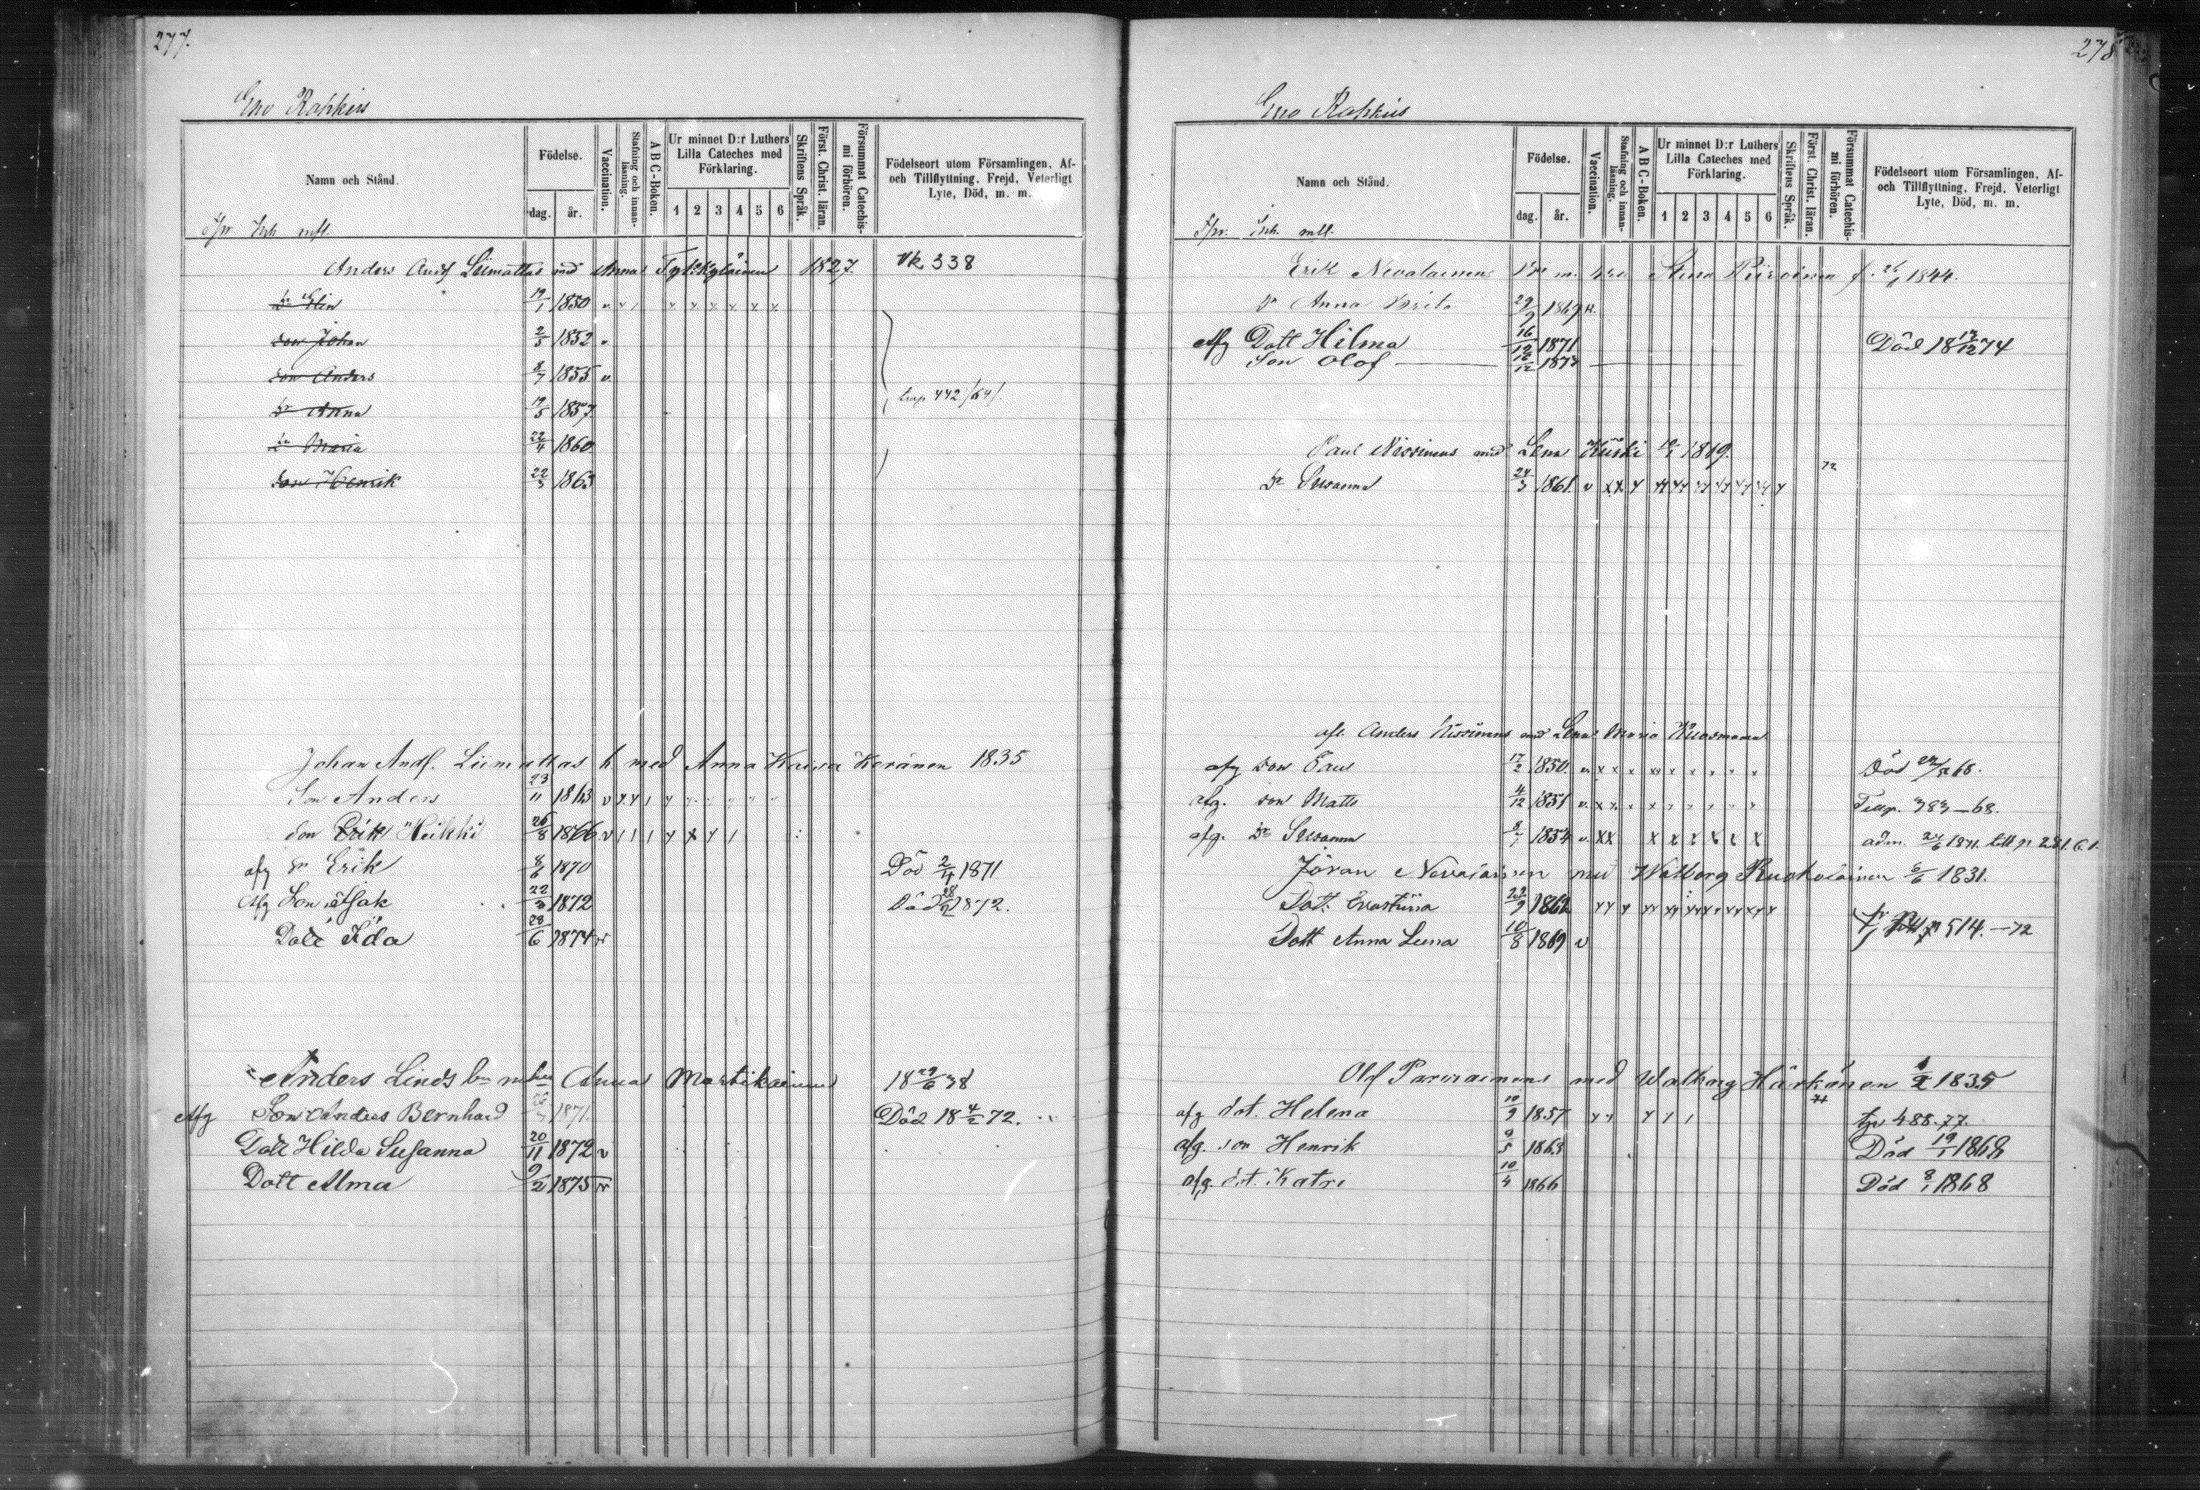 277.
Eno Rapkius
Namn och Stånd.
Födelse.
dag. år.
Vaccination.
Stafning och innan-läsning.
A B C-Boken.
Ur minnet D:r Luthers Lilla Cateches med Förklaring.
1 2 3 4 5 6
Skriftens Språk.
Först. Christ. läran.
Försummat Catechis-mi förhören.
Födelseort utom Församlingen, Af- och Tillflyttning, Frejd, Veterligt Lyte, Död, m. m.
Anders Andf Liimattas med Annas Tykkyläinen 1827. Vk 338
dr Elin 19/1 1850 v
Son Johan 2/3 1852 v
Son Anders 8/7 1855 v.
dr Anna 19/5 1857
dr Maria 22/4 1860
Son Henrik 22/3 1863
442/64/.
Johan Andf. Liimattas h med Anna Kaisa Keränen 1835
Son Anders 23/11 1863 v
Son Erik Heikki 26/8 1866 v
afg Sn Erik 8/6 1870 Död 2/4 1871
Afg Son Isak 22/3 1872 Död 1872.
Dott Ida 28/6 1874 v
Anders Linds Annas Martikainen 18 29/6 38
Afg Son Anders Bernhard 1871. Död 18 4/2 72.
Dott Hilda Susanna 20/11 1872 v
Dott Alma 9/2 1875 v
278
Eno Rapkius
Namn och Stånd.
Födelse.
dag. år.
Vaccination.
Stafning och innan-läsning.
A B C-Boken.
Ur minnet D:r Luthers Lilla Cateches med Förklaring.
1 2 3 4 5 6
Skriftens Språk.
Först. Christ. läran.
Försummat Catechis-mi förhören.
Födelseort utom Församlingen, Af- och Tillflyttning, Frejd, Veterligt Lyte, Död, m. m.
Erik Nevalainens Stina Piiroinen f. 1844.
Dr Anna Brita 29/9 1869
Afg Dott Hilma 16/12 1871 Död 18 13/12 74
Son Olof 1873
Paul Nissinens med Lena 1819.
Dr Susanna 24/3 1861. v 72
afl. Anders Nissinens med Lena Maria Kuosmanen
afg son Paul 17/2 1850. v Död 68.
afg. son Matts 4/12 1851 v. 383–68.
afg. Dr Susanna 8/7 1854 v. 1871.
Jöran Nevalainen med Walborg Ruokolainen 6/6 1831.
Dott. Evastiina 22/9 1862
Dott Anna Leena 10/8 1869 v 514.–72
Olof Parviainens med Walborg Härkönen 1/2 1835
afg dot. Helena 10/9 1857 488.77.
afg. son Henrik 9/5 1863 Död 19/1 1868
afg. dot. Katri 10/4 1866 Död 8/1 1868